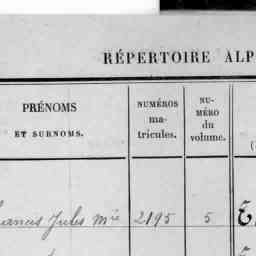 RÉPERTOIRE ALP
PRÉNOMS
ET SURNOMS.
NUMÉROS
ma-
tricules.
NU-
MÉRO
du
volume.
(
Jules Mie 2195 5